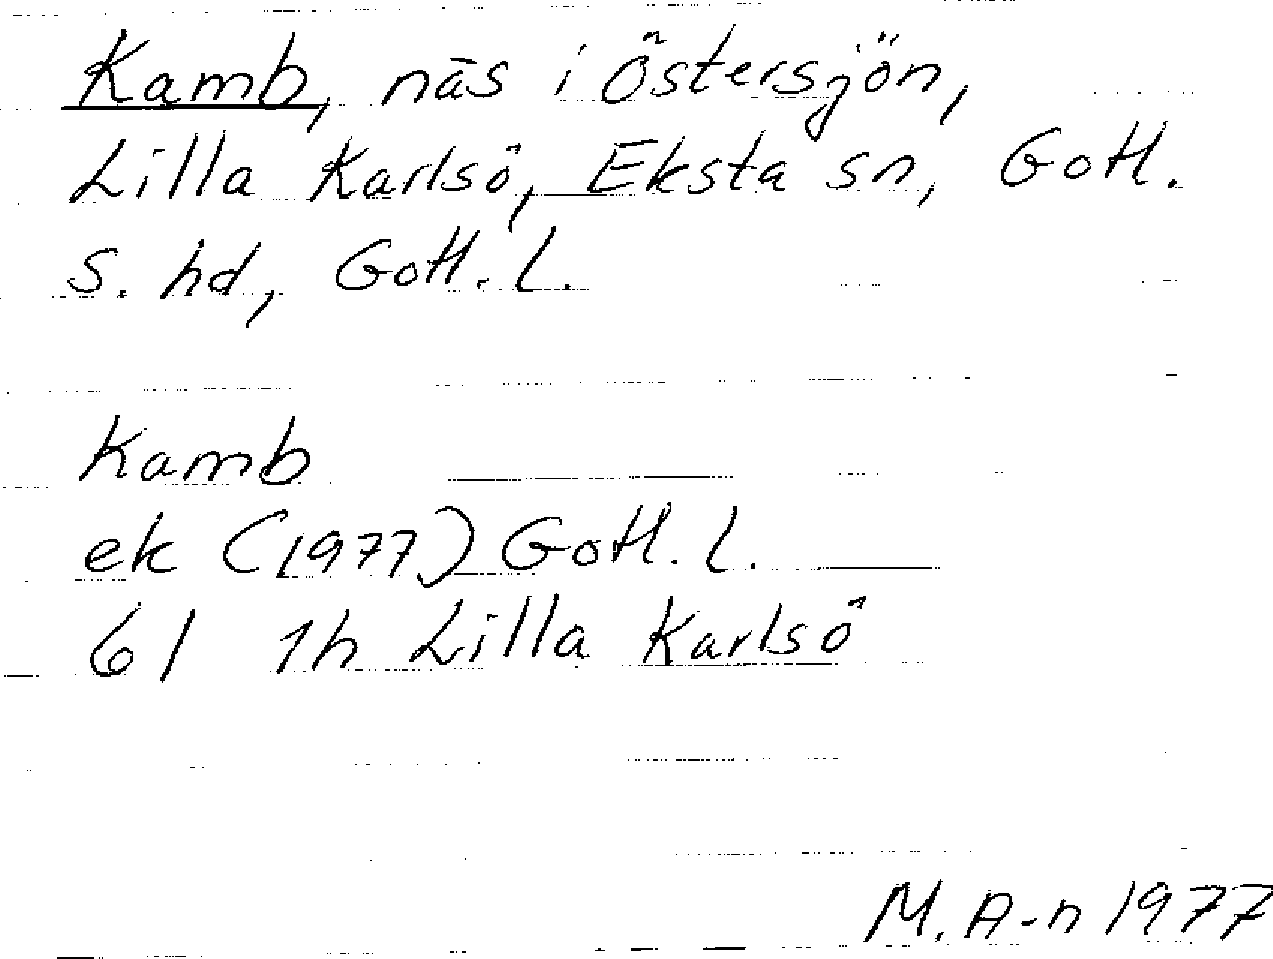 Kamb, näs i Östersjön,
Lilla Karlsö, Eksta sn, Gotl.
S. hd, Gotl. l.
Kamb
ek (1977) Gotl. l.
6I 1h Lilla Karlsö
M. A-n 1977